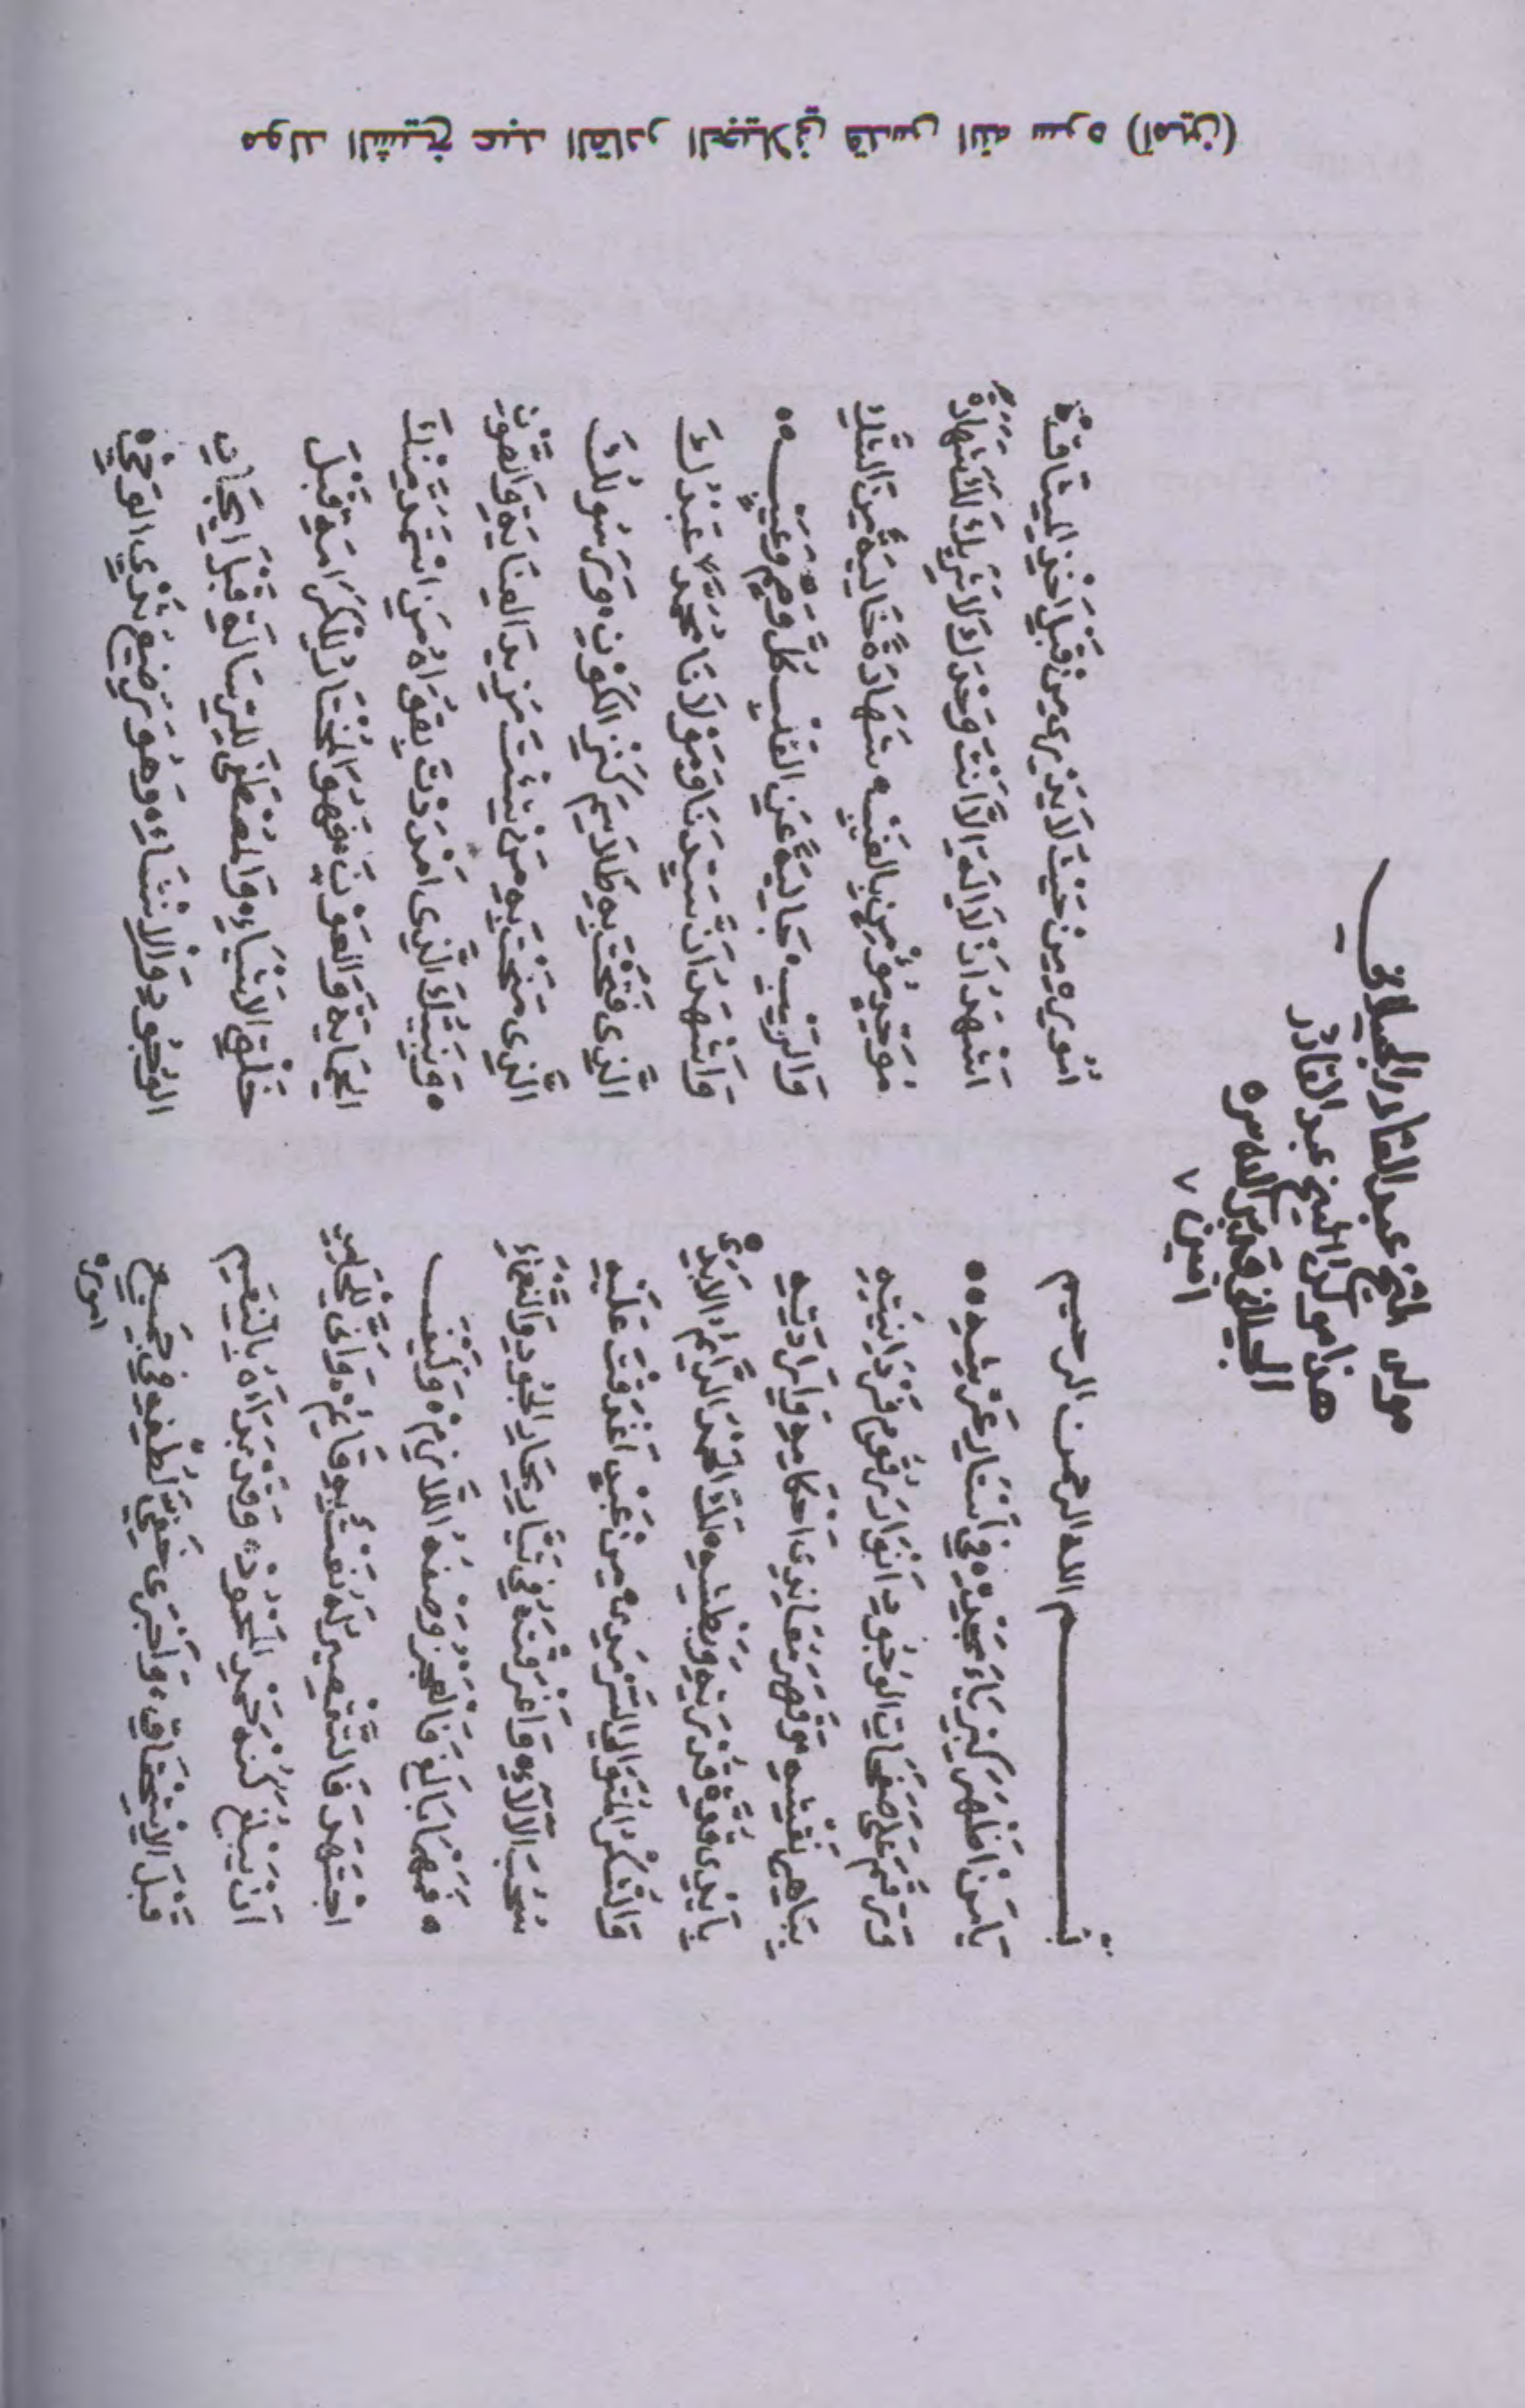 مولد الشيخ عبد القادر الجيلاني قدس الله سره (آمين)
مولد الشيخ عبد القادر الجيلاني
هذا مولد الشيخ عبد القادر
الجيلاني قدس الله سره
امين ٧
بسم الله الرحمن الرحيم
يَا مَنْ اَظْهَرَ كِبْرِيَاءَ مَجْدِهِ فِي اَسْتَارِ عَرْشِهِ
وَرَقَمَ عَلَى صَفَحَاتِ الْوُجُودِ اَنْوَارَ رُقُومِ فَرْدَانِيَّتِهِ
بِبَاهِي نَقْشِهِ وَقَهَرَ مُعَانِدِى اَحْكَامِهِ وَاِرَادَتِهِ
بِاَيْدِى قُوَّةِ قُدْرَتِهِ وَبَطْشِهِ لَكَ الْحَمْدُ الدَّائِمُ الْاَبَدِىُّ
وَالشُّكْرُ الْمُتَوَالِى السَّرْمَدِىُّ مِنْ عَبْدٍ اَغْدَقْتَ عَلَيْهِ
سُحُبَ الْآلَاءِ وَاَغْرَقْتَهُ فِي تَيَّارِ بِحَارِ الْجُودِ وَالنَّعْمَاءِ
فَمَهْمَا بَالَغَ فَالْعَجْزُ وَصْفُهُ اللَّازِمُ وَكَيْفَ
اجْتَهَدَ فَالتَّقْصِيرُ لَهُ نَعْتٌ بِهِ قَائِمٌ وَاَنَّى لِلْحَامِدِ
اَنْ يَبْلُغَ كُنْهَ حَمْدِ الْمَحْمُودِ وَقَدْ بَدَاَهُ بِالنَّعِيمِ
قَبْلَ الْاِسْتِحْقَاقِ وَاَجْرَى خَفِيَّ لُطْفِهِ فِي جَمِيعِ
اموره
اُمُورِهِ مِنْ حَيْثُ لَا يَدْرِى مِنْ قَبْلِ اَخْذِ الْمِيثَاقِ
اَشْهَدُ اَنْ لَا اِلَهَ اِلَّا اَنْتَ وَحْدَكَ لَا شَرِيكَ لَكَ شَهَادَةَ
مُوَحِّدٍ مُؤْمِنٍ بِالْغَيْبِ شَهَادَةً خَالِيَةً مِنَ الشَّكِّ
وَالرَّيْبِ جَالِيَةً عَنِ الْقَلْبِ كُلَّ وَهْمٍ وَعَيْبٍ
وَاَشْهَدُ اَنَّ سَيِّدَنَا وَمَوْلَانَا مُحَمَّدًا عَبْدُكَ
وَرَسُولُكَ الَّذِى فَتَحْتَ بِهِ طَلَاسِمَ كَنْزِ الْكَوْنِ
الَّذِى مَنَحْتَ بِهِ مَنْ شِئْتَ مَزِيدَ الْعِنَايَةِ وَالصَّوْنِ
وَنَبِيُّكَ الَّذِى اَمْدَدْتَ بِقُوَاهُ مَنِ اسْتَمَدَّ مِنْكَ
الْحِمَايَةَ وَالْعَوْنَ فَهُوَ الْمُخْتَارُ لِلْكَرَامَةِ قَبْلَ
خَلْقِ الْاَشْيَاءِ وَالْمُصْطَفَى لِلرِّسَالَةِ قَبْلَ اِيْجَادِ
الْوُجُودِ وَالْاِنْشَاءِ وَهُوَ رَضِيعُ ثَدْيِ الْوَحْيِ